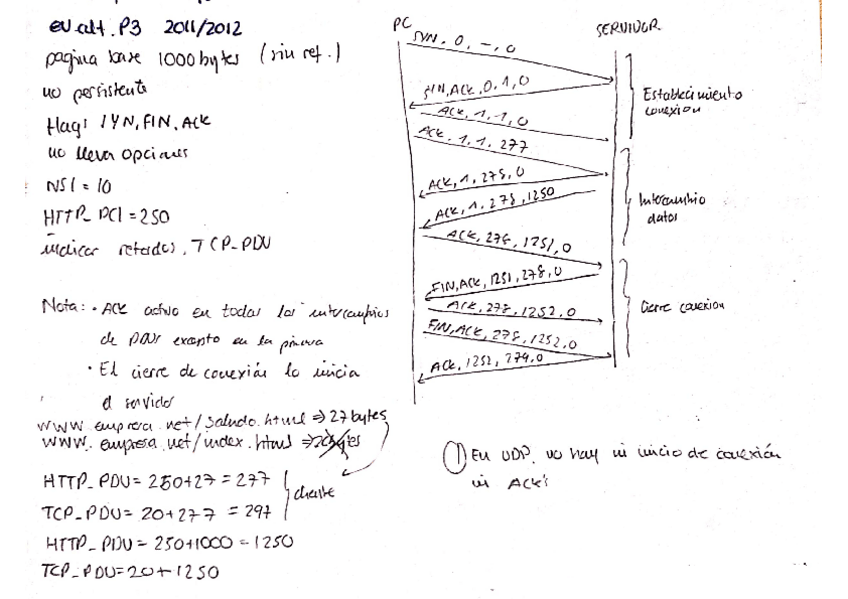 ev. alt. P3 2011/2012
pagina base 1000 bytes (sin ref.)
no persistente
Flags SYN, FIN, ACK
no lleva opciones
NSI = 10
HTTP_PCI = 250
indicar retardos, TCP_PDU
Nota: · ACK activo en todos los intercambios
de PDUs excepto en la primera
· El cierre de conexión lo inicia
el servidor
www.empresa.net/saludo.html => 27 bytes
www.empresa.net/index.html =>
HTTP_PDU = 250+27 = 277
TCP_PDU = 20+277 = 297
cliente
HTTP_PDU = 250+1000 = 1250
TCP_PDU = 20+1250
PC
SERVIDOR
SYN, 0, -, 0
SYN, ACK, 0, 1, 0
ACK, 1, 1, 0
ACK, 1, 1, 277
Establecimiento
conexion
ACK, 1, 278, 0
ACK, 1, 278, 1250
ACK, 278, 1251, 0
Intercambio
datos
FIN, ACK, 1251, 278, 0
ACK, 278, 1252, 0
FIN, ACK, 278, 1252, 0
ACK, 1252, 279, 0
Cierre conexion
① En UDP, no hay ni inicio de conexión
ni ACK's